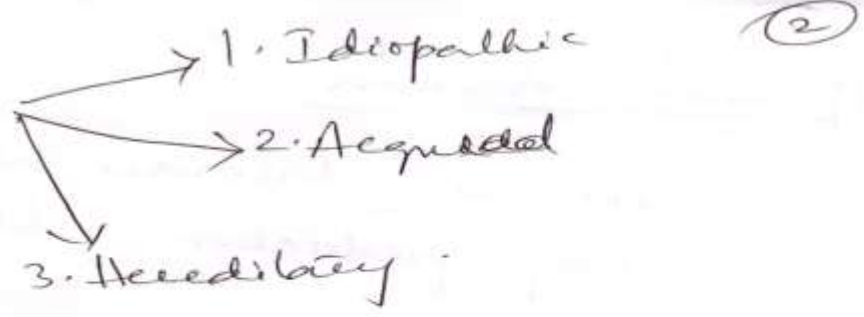 1. Idiopathic
2
2. Acquired
3. Hereditary.